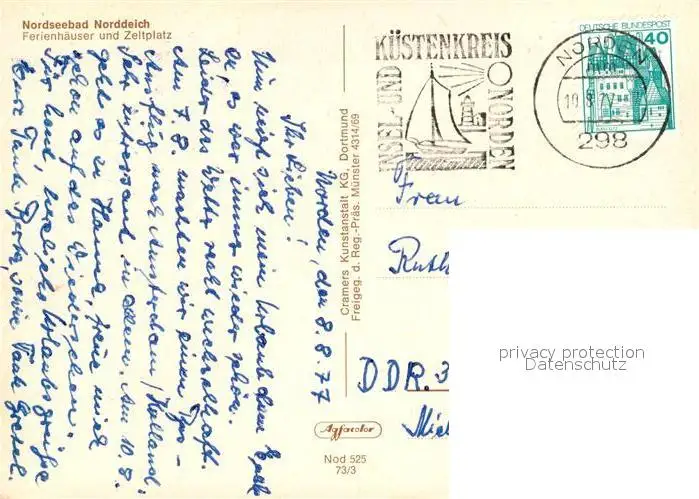 Nordseebad Norddeich
Ferienhäuser und Zeltplatz
Norden, den 8.8.77
Ihr Lieben!
Nun neigt sich mein Urlaub dem Ende
zu, es war immer wieder schön.
Leider das Wetter recht wechselhaft.
Am 7.8. machten wir einen Tges-
Ausflug nach Amsterdam/Holland
Sehr interessant in allem. Am 10.8.
geht es n. Hause, freue mich
schon auf das Wiedersehen.
Für heute herzliche Urlaubsgrüße
Eure Tante Gerta, sowie Tante Gretel.
Cramers Kunstanstalt KG, Dortmund
Freigeg. d. Reg.-Präs. Münster 4314/69
Agfacolor
Nod 525
73/3
INSEL-UND
KÜSTENKREIS
NORDEN
DEUTSCHE BUNDESPOST
40
NORDEN
10.8.77
298
Frau
Ruth
DDR.3
privacy protection
Datenschutz